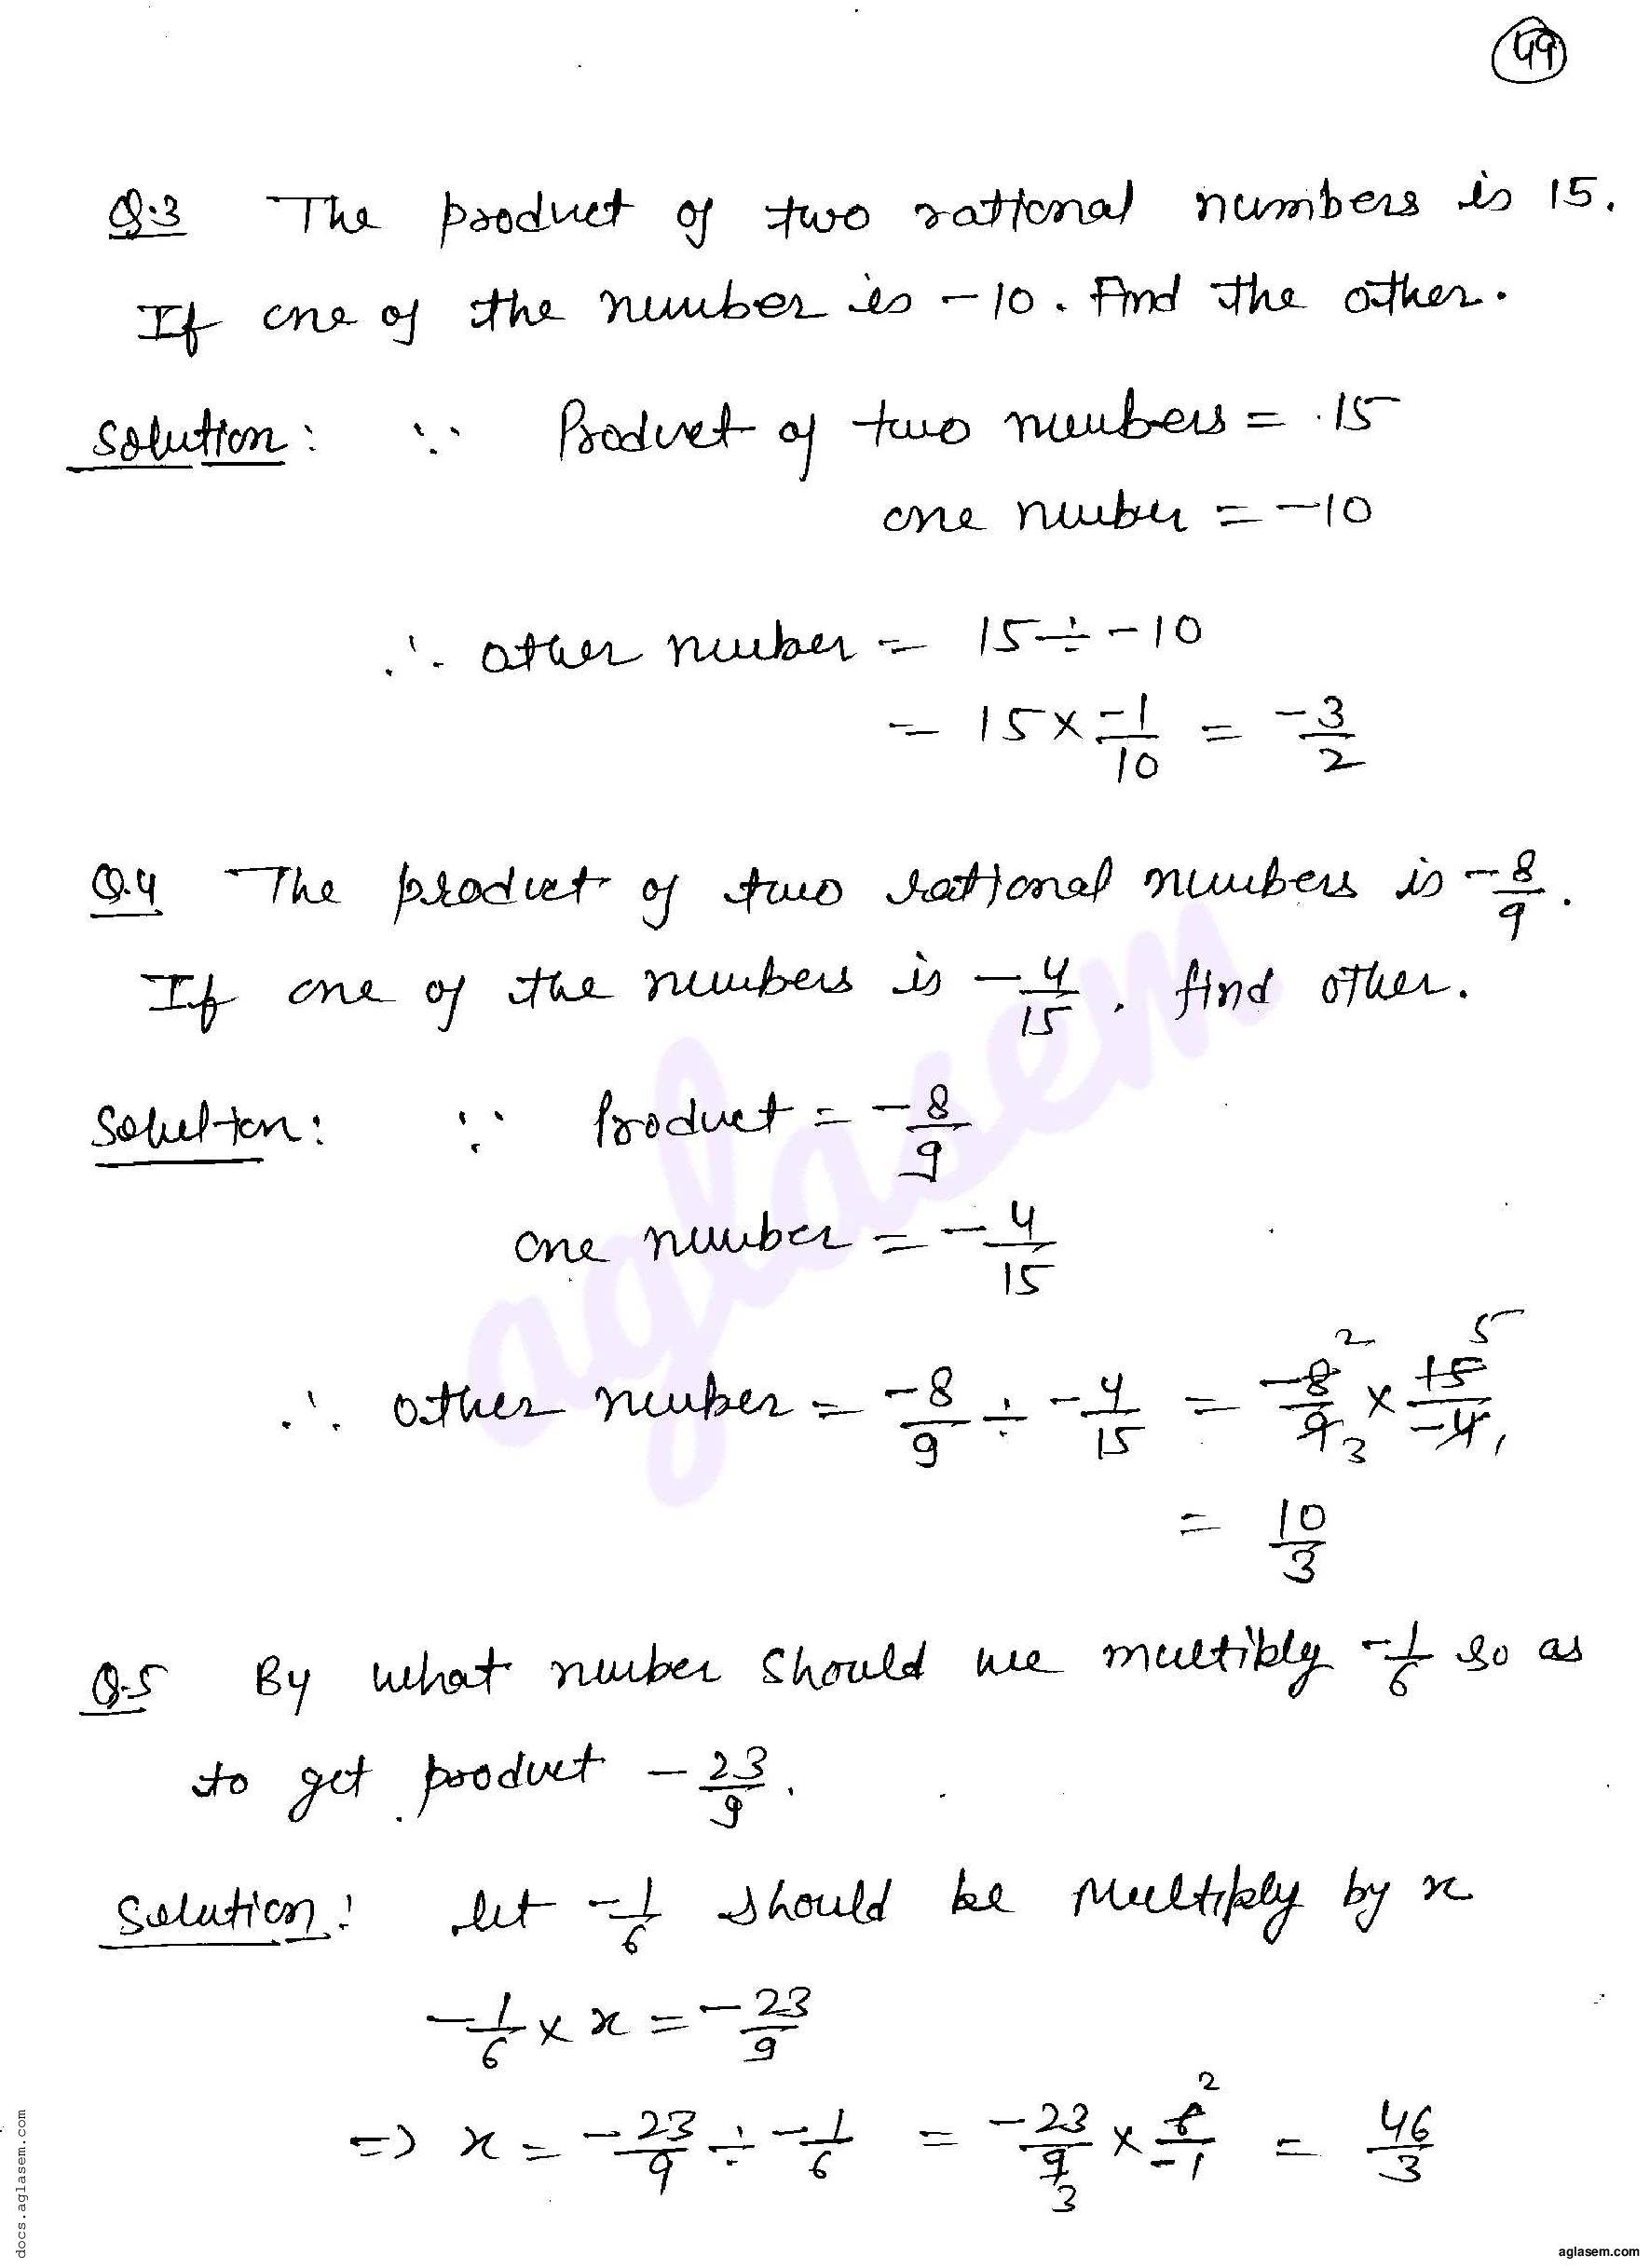 49
Q.3 The product of two rational numbers is 15.
If one of the number is -10. Find the other.
Solution: ∵ Product of two numbers = 15
one number = -10
∴ other number = 15 ÷ -10
= 15 × -1/10 = -3/2
Q.4 The product of two rational numbers is -8/9.
If one of the numbers is -4/15. find other.
Solution: ∵ Product = -8/9
one number = -4/15
∴ other number = -8/9 ÷ -4/15 = -8/9 × 15/-4
2 3 5 1
= 10/3
Q.5 By what number should we multiply -1/6 so as
to get product -23/9.
Solution: let -1/6 should be multiply by x
-1/6 × x = -23/9
=> x = -23/9 ÷ -1/6 = -23/9 × 6/-1 = 46/3
3 2
aglasem
docs.aglasem.com
aglasem.com